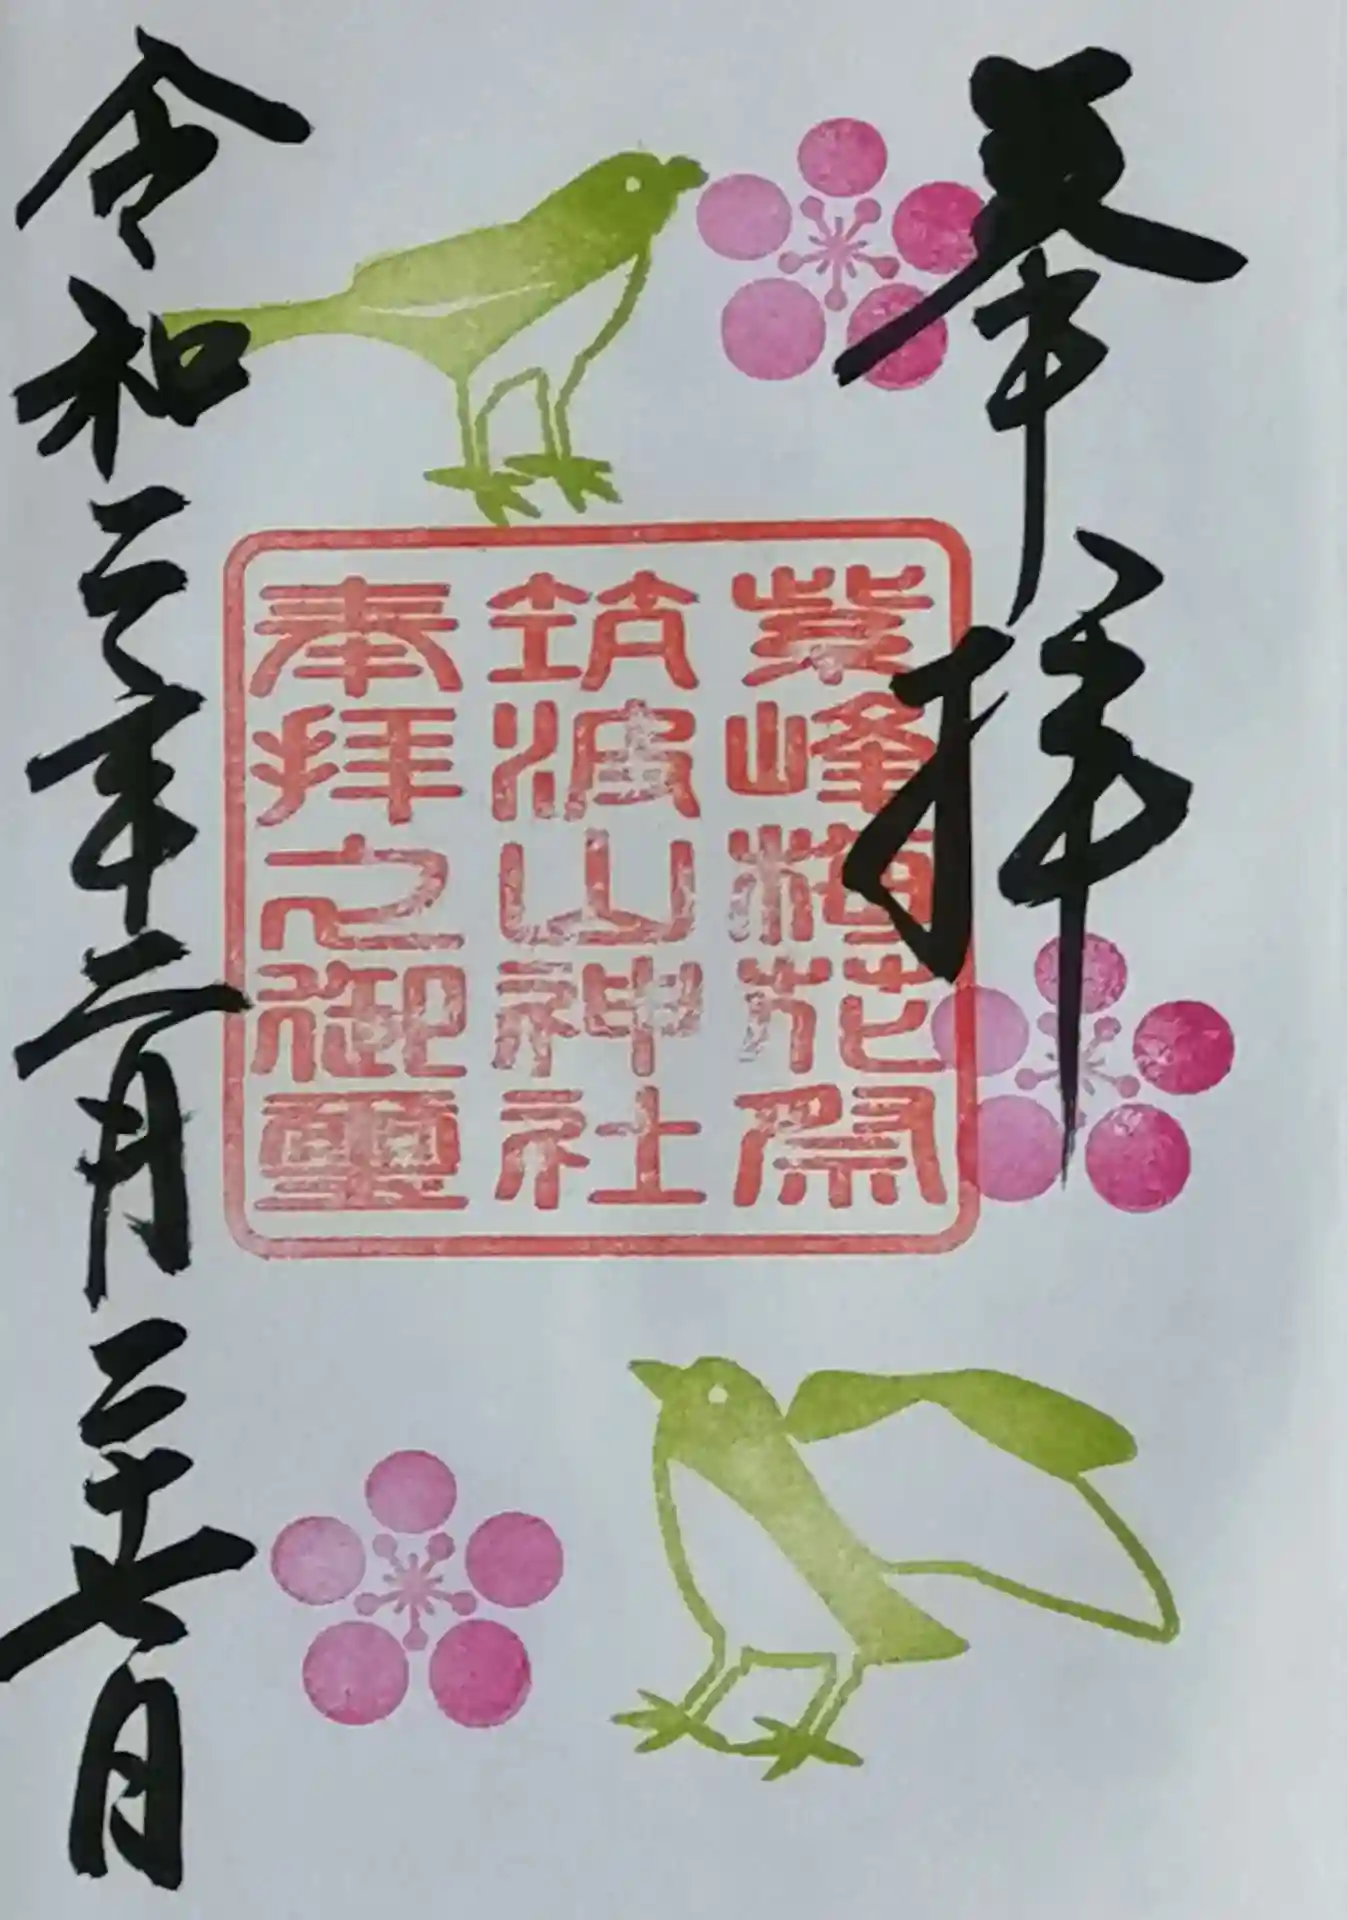 奉拝
紫峰梅花祭
筑波山神社
奉拝之御璽
令和三年二月二十七日